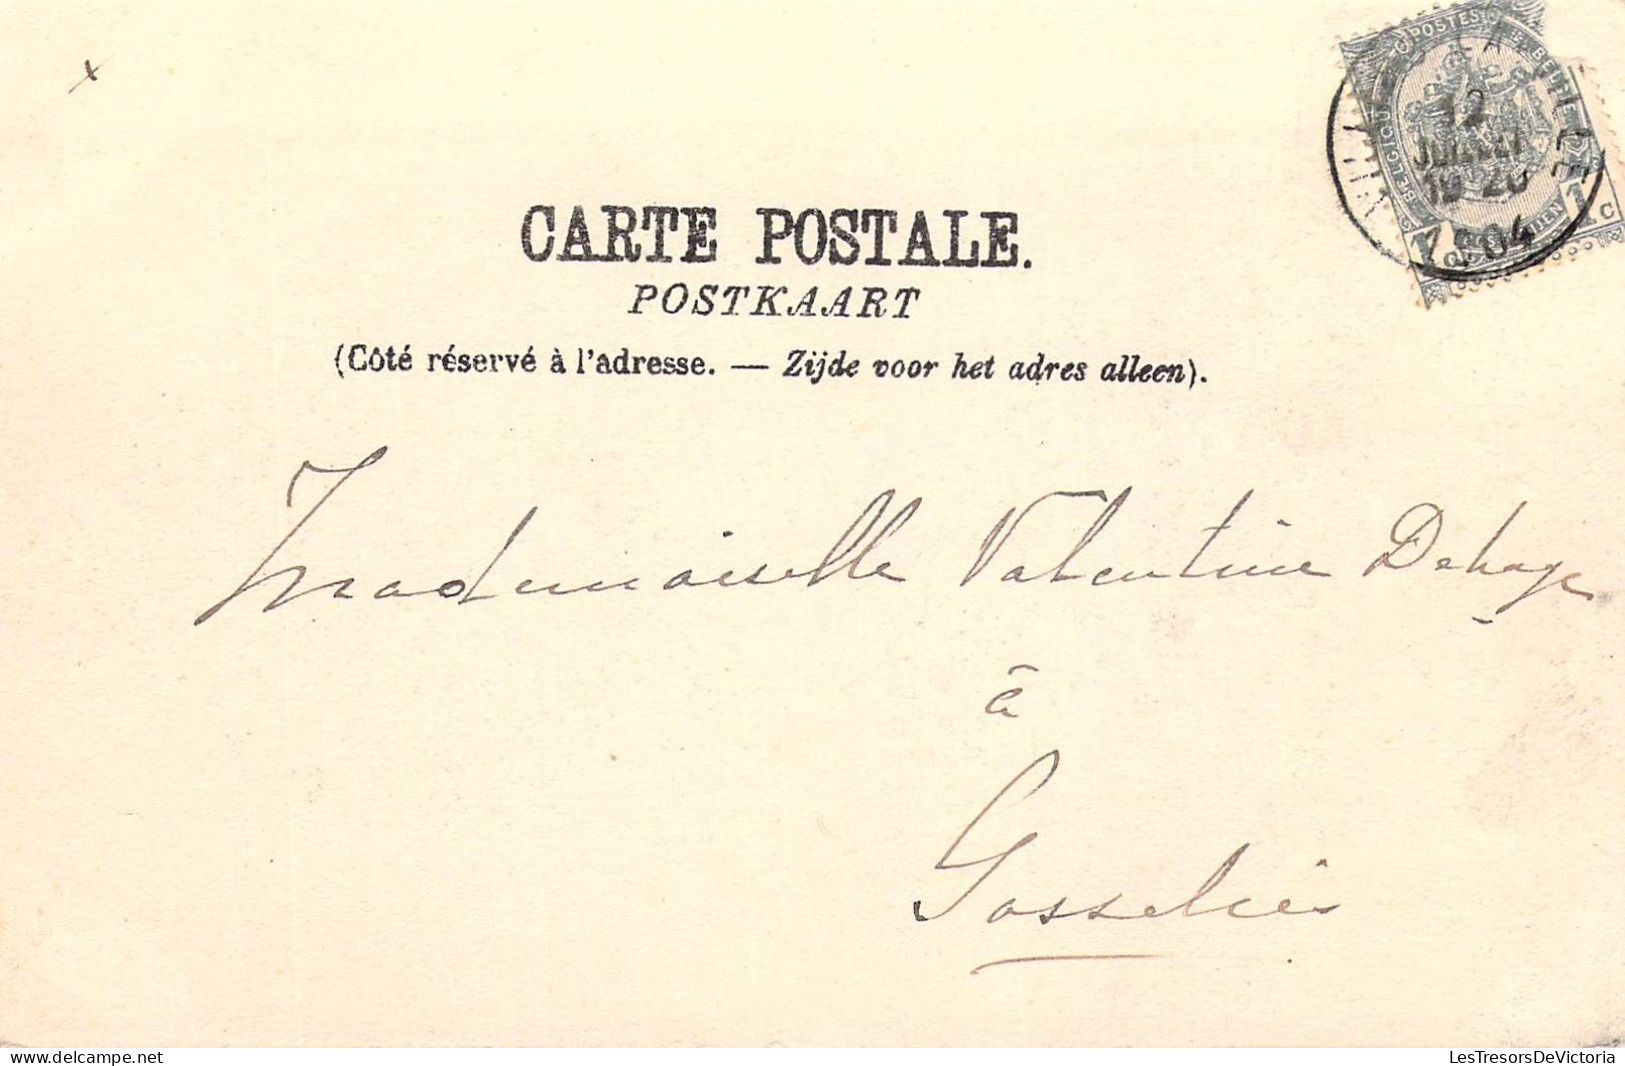 BELGIQUE POSTES BELGIE
12
JUILLET
19-20
1904
1 C
CARTE POSTALE.
POSTKAART
(Côté réservé à l'adresse. — Zijde voor het adres alleen).
Mademoiselle Valentine Dehaye
à
Gosselies
LesTresorsDeVictoria
delcampe.net